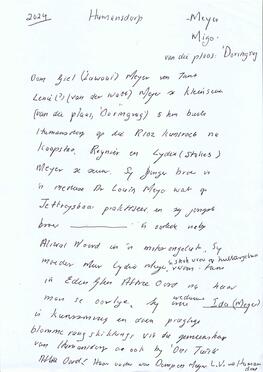 2024 Humansdorp Meyer
Migo.
van die plaas: 'Doringrug
Oom Giel (Lawaai) Meyer en Tant
Lenie(?) (van der Watt) Meyer se kleinseun
(van die plaas, 'Doringrug') 5 km buite
Humansdorp op die R102 kusroete na
Kaapstad. Reynier en Lydia (Stokes)
Meyer se seun. Sy jonger broer is
'n mediese Dr Louis Meyer wat op
Jeffreysbaai praktiseer en sy jongste
broer is oorlede naby
Aliwal Noord in 'n motorongeluk. Sy
moeder Mev Lydia Meyer,
in Eden Glen Aftree Oord na haar
man se oorlye. Sy weduwee Ida (Meyer)
is kunssinnig en doen pragtige
blomme rangskikkings vir die gemeenskap
van Humansdorp en ook by 'Ons Tuiste'
Aftree Oord! Haar vader was Dampies Meyer L.V. vir Humans
dorp